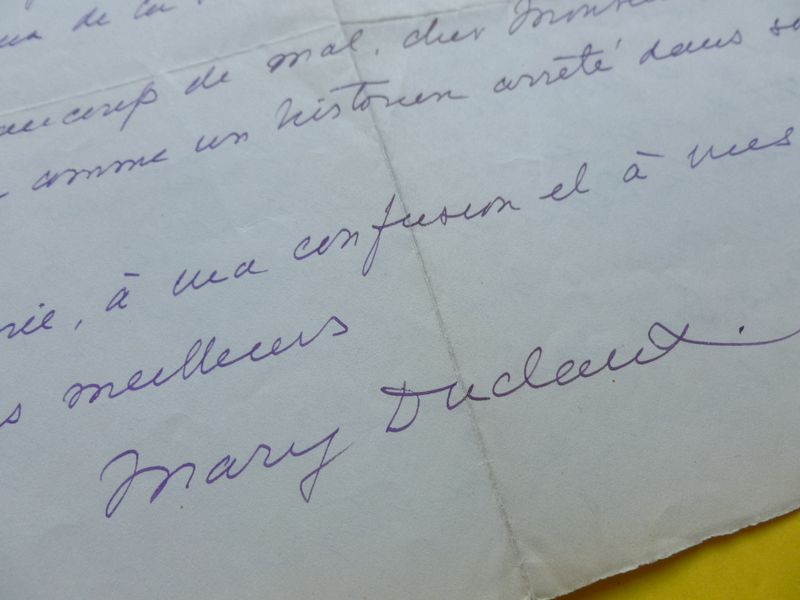 de la
de mal, cher
comme un historien arrêté dans
, à ma confusion et à mes
meilleurs
Mary Duclaux.